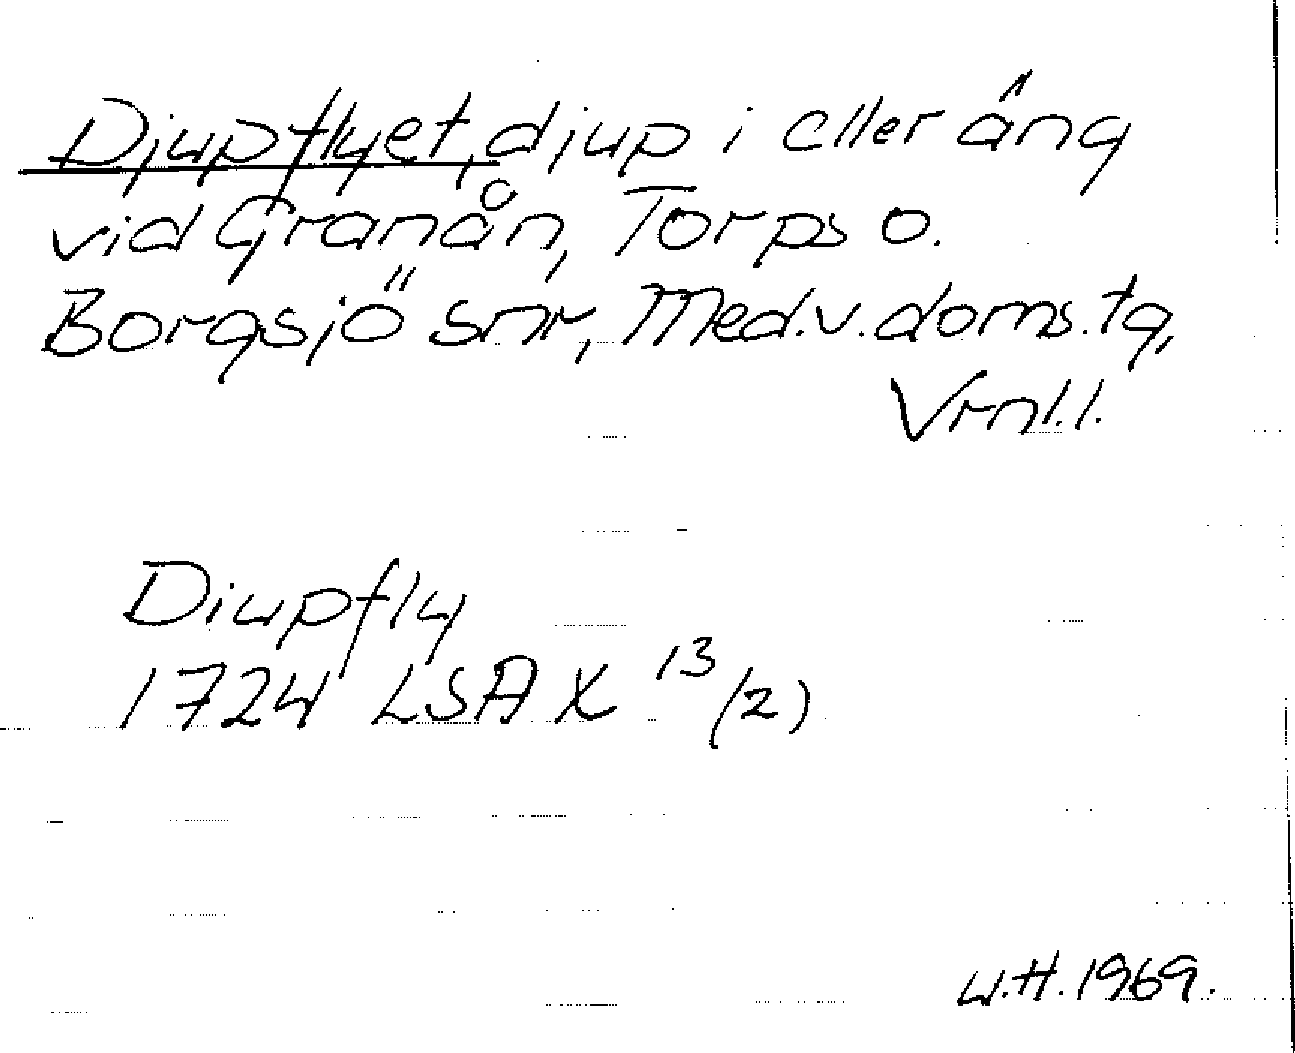 Djupflyet, djup i eller äng
vid Granån, Torps o.
Borgsjö snr, Med.v.doms.tg,
Vrnl.l.
Diupfly
1724 LSA X 13/(2)
W.H. 1969.